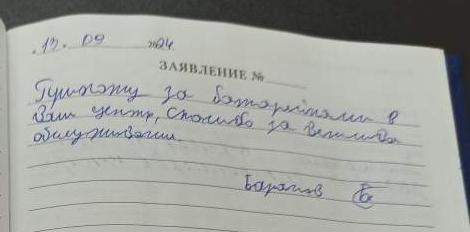 12. 09 2024
ЗАЯВЛЕНИЕ №
Прихожу за батарейками в
Ваш центр, спасибо за
обслуживание.